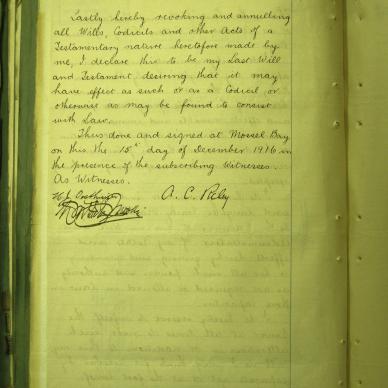 Lastly hereby revoking and annulling
all Wills, Codicils and other Acts of a
Testamentary nature heretofore made by
me, I declare this to be my Last Will
and Testament desiring that it may
have effect as such or as a Codicil or
otherwise as may be found to consist
with Law.
Thus done and signed at Mossel Bay
on this the 15th day of December 1916 in
the presence of the subscribing Witnesses.
As Witnesses.
A. C. Riley